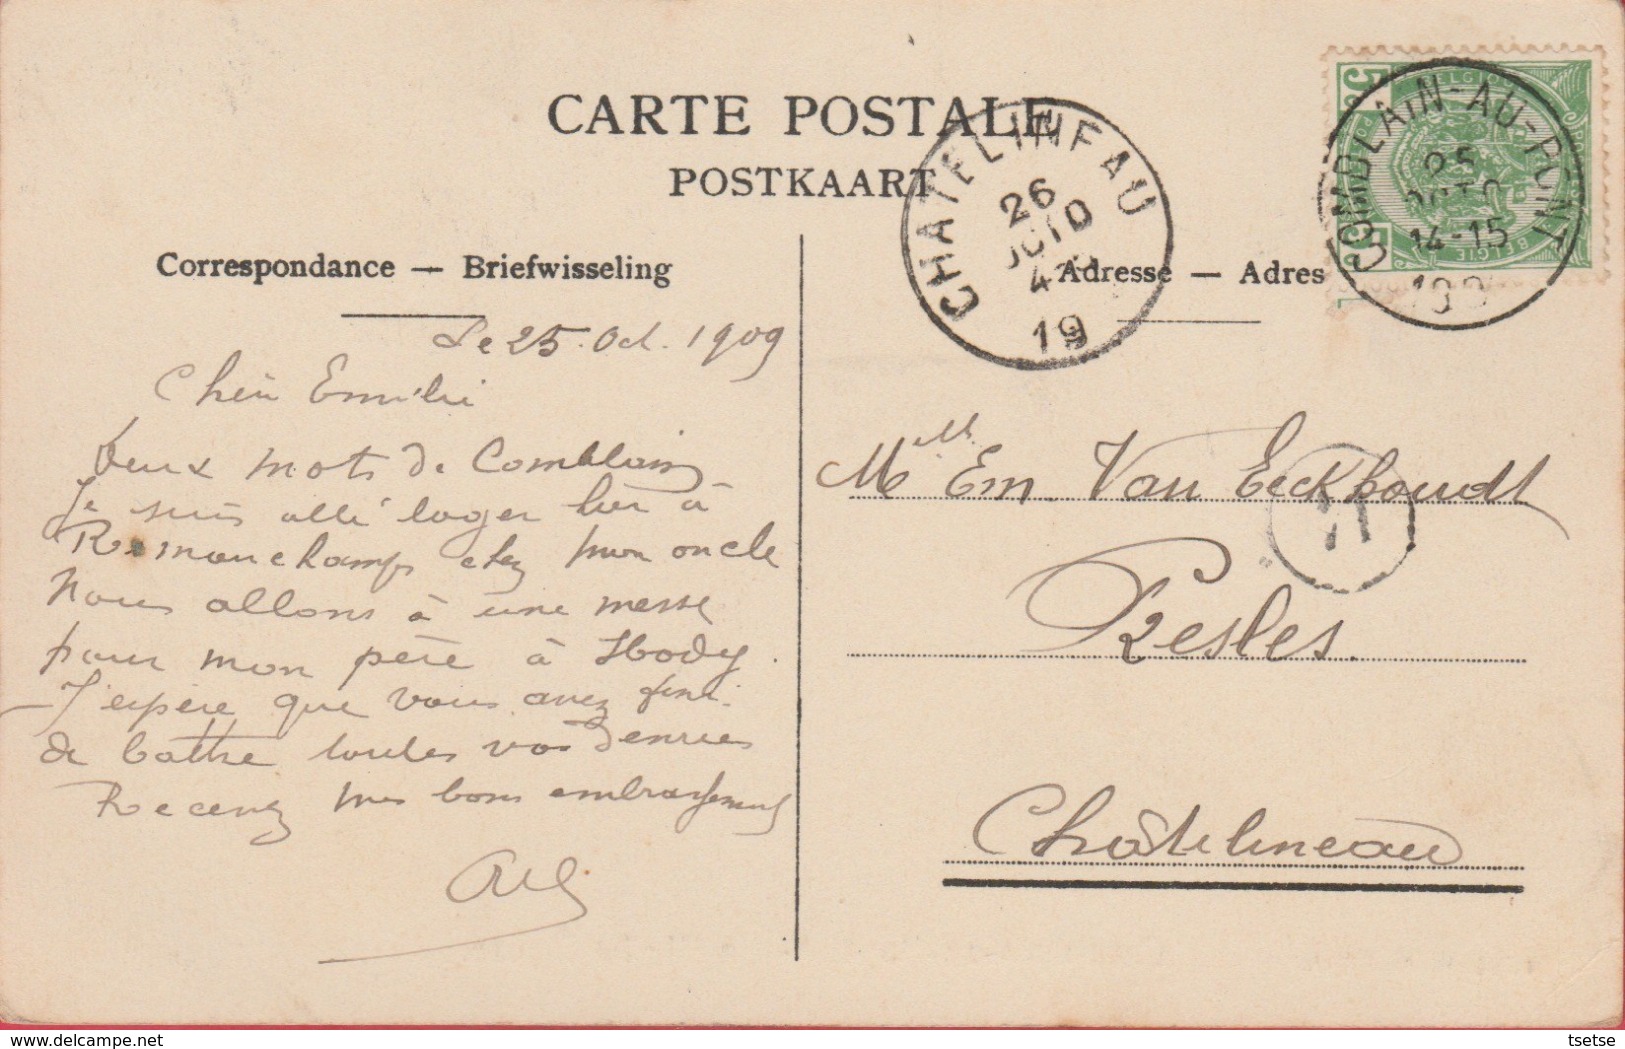 CARTE POSTALE
POSTKAART
Correspondance — Briefwisseling
Adresse — Adres
CHATELINEAU
26
19
COMBLAIN-AU-PONT
25
OCTO
14-15
190
BELGIQUE
BELGIE
Le 25. Oct. 1909
Chère Emilie
Deux mots de Comblain
Je suis allé loger hier à
Romanchamps chez mon oncle
Nous allons à une messe
pour mon père à Hody.
J'espère que vous avez fini
de battre toutes vos denrées
Recevez mes bons embrassements
Mlle Em. Van Eeckhoudt
Resles.
Châtelineau
11
tsetse
www.delcampe.net